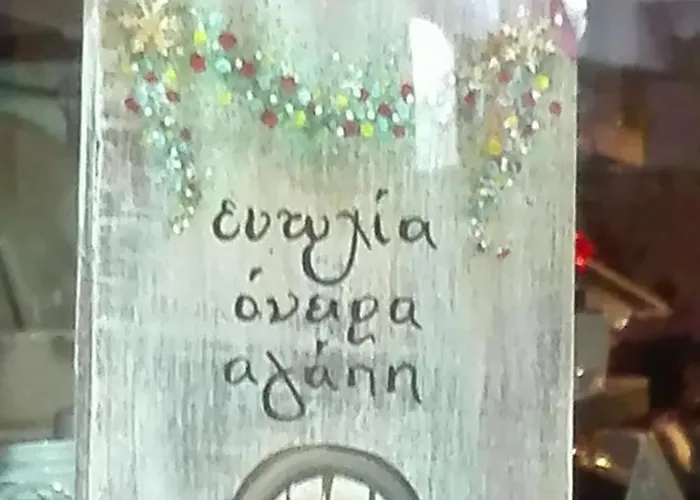 ευτυχία
όνειρα
αγάπη